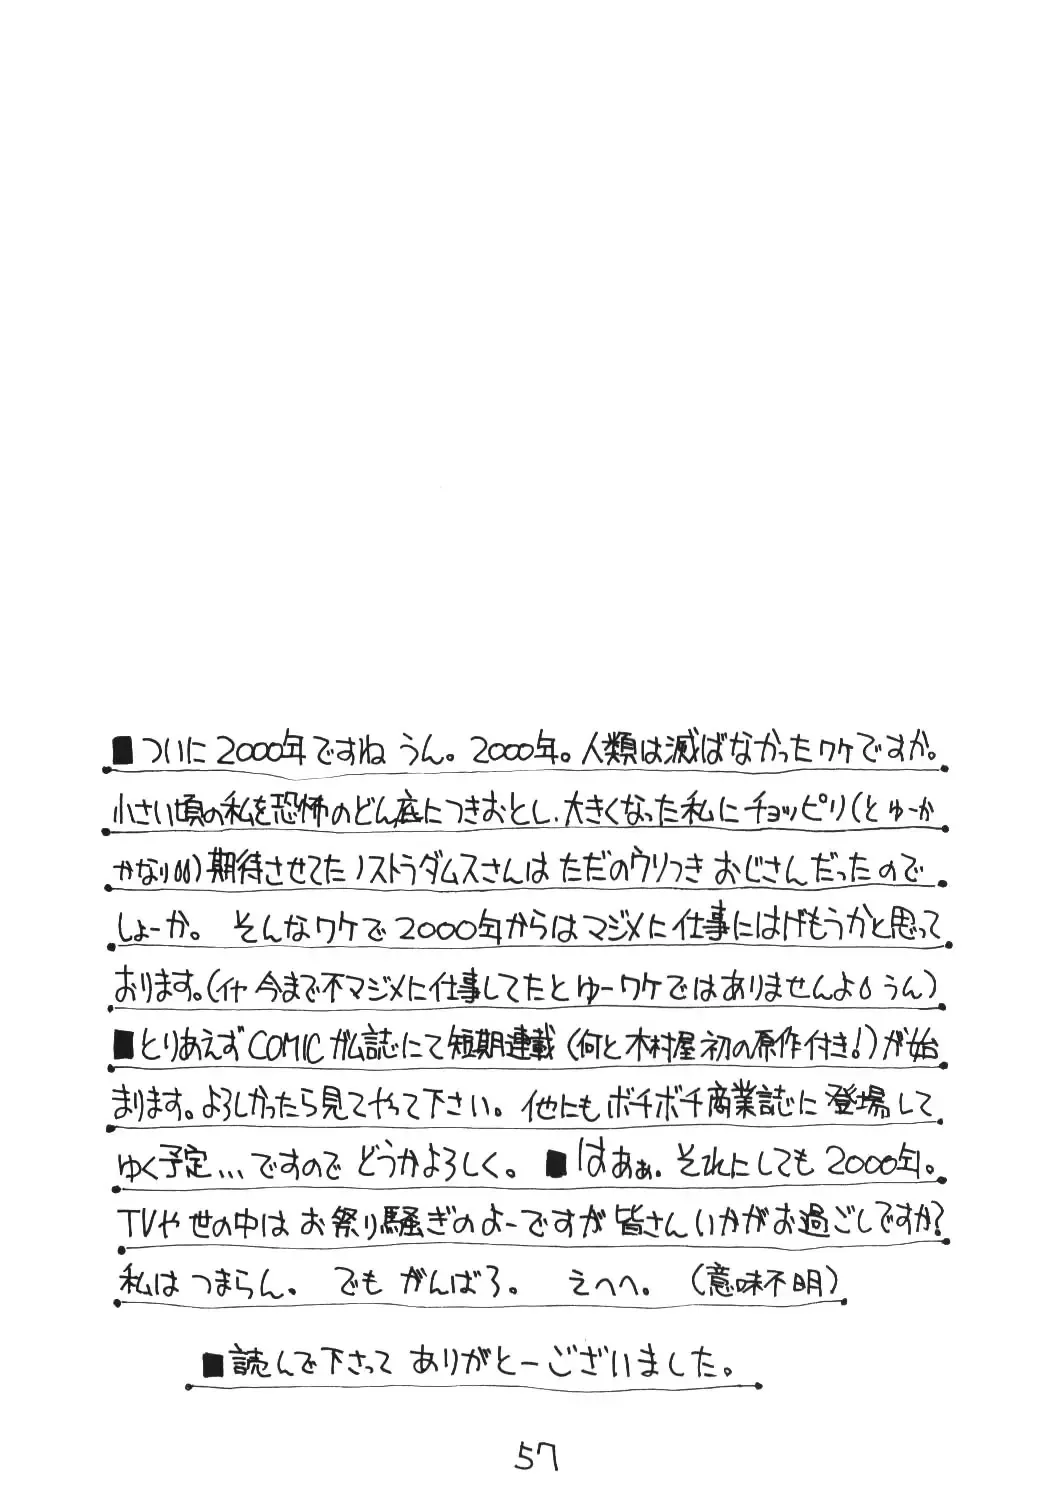 ■ついに2000年ですね うん。2000年。人類は滅ばなかったワケですか。
小さい頃の私を恐怖のどん底につきおとし、大きくなった私にチョッピリ(とゅーか
かなり〇〇)期待させてたノストラダムスさんは ただのウリつき おじさんだったので
しょーか。 そんなワケで 2000年からはマジメに仕事にはげもうかと思って
おります。(イヤ 今まで不マジメに仕事してたとゆーワケではありませんよ うん)
■とりあえずCOMICガム誌にて短期連載(何と木村屋初の原作付き!)が始
まります。よろしかったら見てやって下さい。他にもボチボチ商業誌に登場して
ゆく予定...ですので どうかよろしく。 ■はあぁ. それにしても2000年。
TVや世の中は お祭り騒ぎのよーですが 皆さんいかがお過ごしですか?
私は つまらん。 でも がんばろ。 えへへ。 (意味不明)
■読んで下さって ありがとーございました。
57